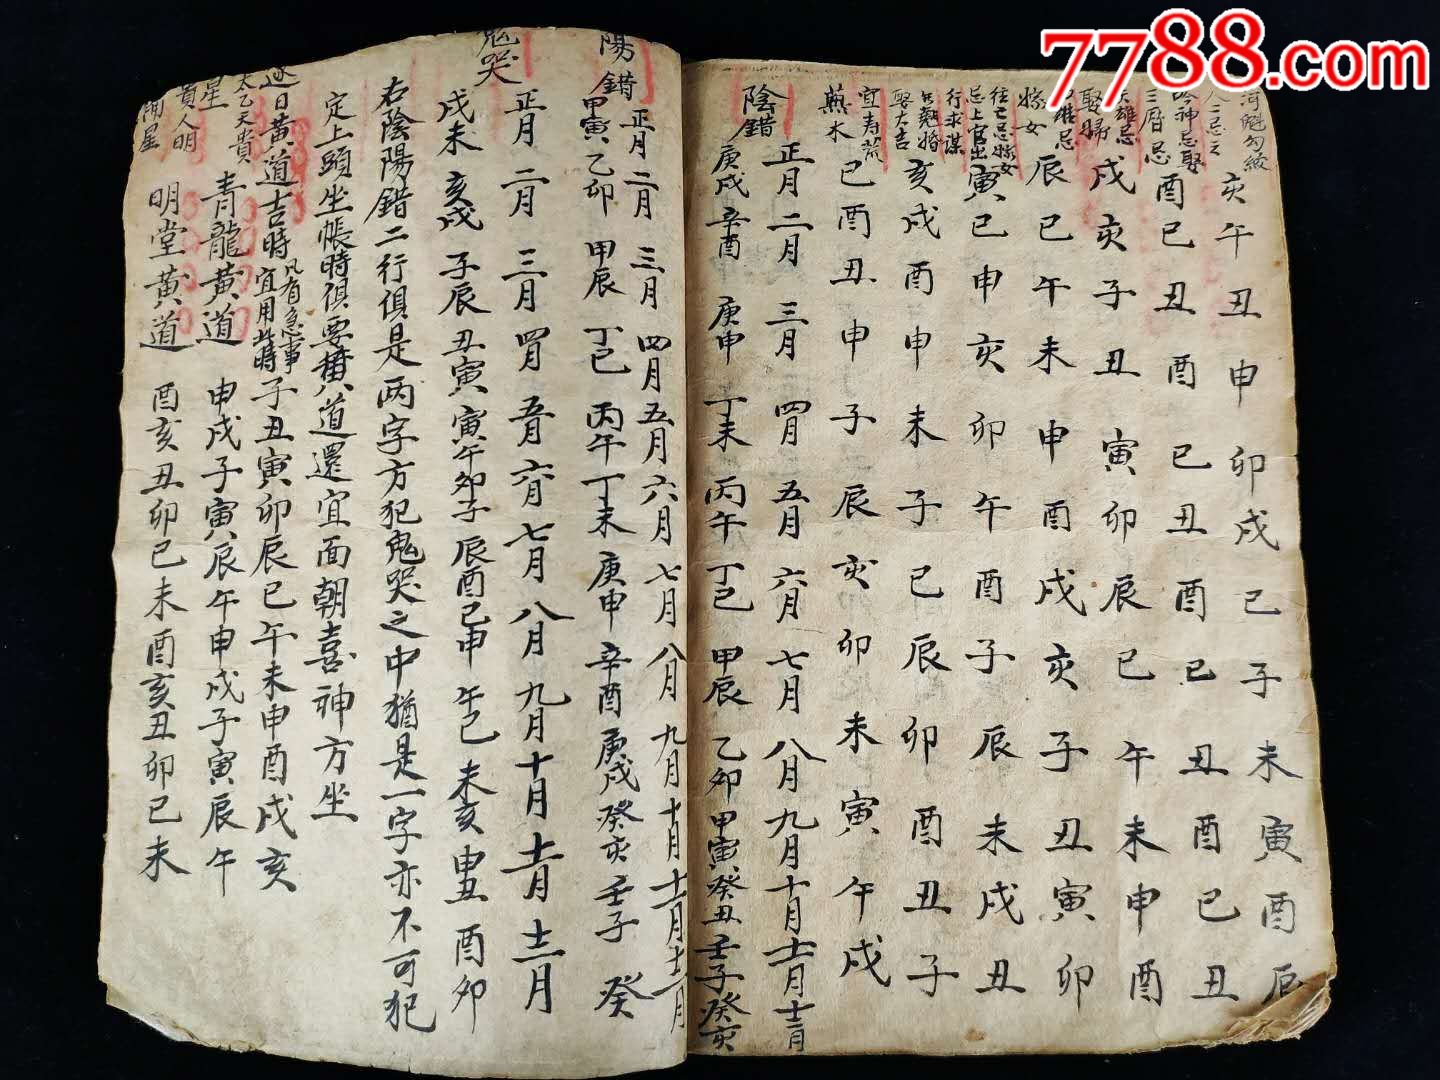 7788.com
河魁勾絞 亥午丑申卯戌巳子未寅酉辰
人二忌之
吟神忌娶
三曆忌 酉巳丑酉巳丑酉巳丑酉巳丑
天雄忌
娶婦 戌亥子丑寅卯辰巳午未申酉
雄忌
嫁女 辰巳午未申酉戌亥子丑寅卯
往亡忌嫁女
忌上官出
行求謀 寅巳申亥卯午酉子辰未戌丑
婚
娶大吉 亥戌酉申未子巳辰卯酉丑子
宜寿
無木 巳酉丑申子辰亥卯未寅午戌
陰錯 正月二月三月四月五月六月七月八月九月十月十一月十二月
庚戌辛酉庚申丁未丙午丁巳甲辰乙卯甲寅癸丑壬子癸亥
陽錯 正月二月三月四月五月六月七月八月九月十月十一月十二月
甲寅乙卯甲辰丁巳丙午丁未庚申辛酉庚戌癸亥壬子癸
鬼哭 正月二月三月四月五月六月七月八月九月十月十一月十二月
戌未亥戌子辰丑寅寅午卯子辰酉巳申午巳未亥申丑酉卯
右陰陽錯二行俱是两字方犯鬼哭之中猶是一字亦不可犯
定上頭坐帳時俱要黃道還宜面朝喜神方坐
逐日黃道吉時凡有急事宜用此時子丑寅卯辰巳午未申酉戌亥
太乙天貴
星 青龍黃道 申戌子寅辰午申戌子寅辰午
貴人明
星 明堂黃道 酉亥丑卯巳未酉亥丑卯巳未